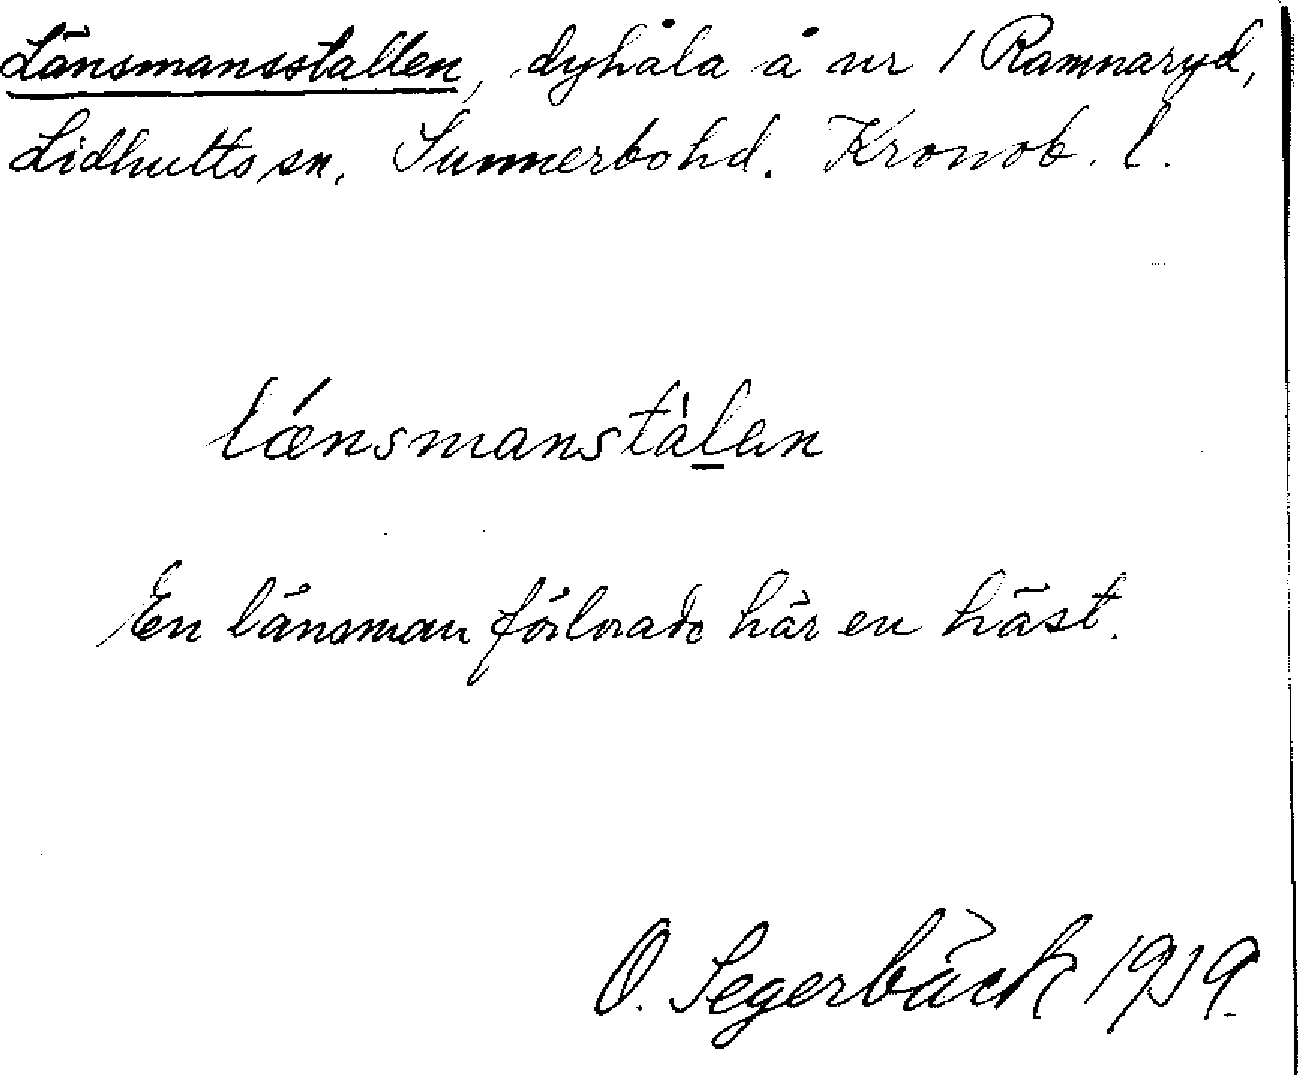 Länsmansstallen, dyhåla å nr 1 Ramnaryd,
Lidhults sn, Sunnerbo hd. Kronob. l.
lǽnsmanstàlen
En länsman förlorade här en häst.
O. Segerbäck 1919.